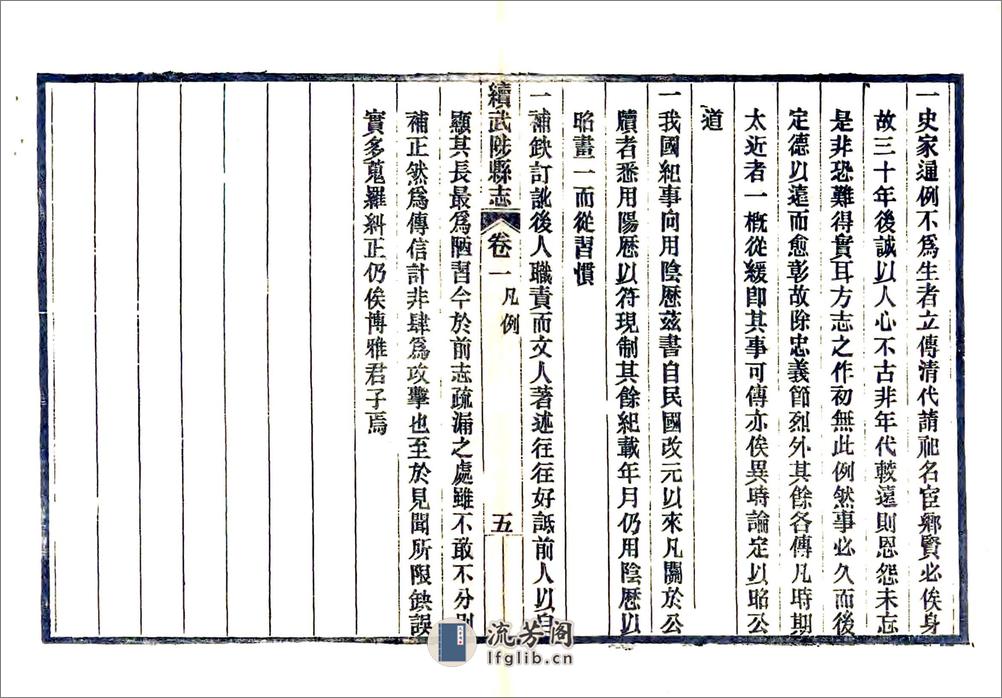 一史家通例不爲生者立傳清代請祀名宦鄉賢必俟身
故三十年後誠以人心不古非年代較遠則恩怨未忘
是非恐難得實耳方志之作初無此例然事必久而後
定德以遠而愈彰故除忠義節烈外其餘各傳凡時期
太近者一概從緩卽其事可傳亦俟異時論定以昭公
道
一我國紀事向用陰歷茲書自民國改元以來凡關於公
牘者悉用陽歷以符現制其餘紀載年月仍用陰歷以
昭畫一而從習慣
一補缺訂訛後人職責而文人著述往往好詆前人以自
續武陟縣志
卷一
凡例
五
顯其長最爲陋習今於前志疏漏之處雖不敢不分別
補正然爲傳信計非肆爲攻擊也至於見聞所限缺誤
實多蒐羅糾正仍俟博雅君子焉
流芳阁
lfglib.cn